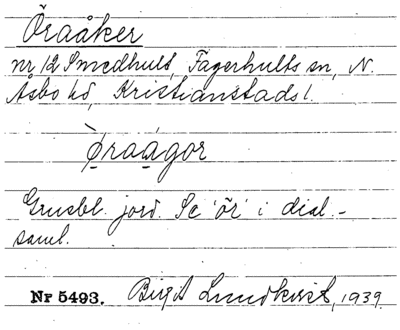 Öraåker
nr 12 Smedhult, Fagerhults sn, N.
Åsbo hd, Kristianstads l.
ø̀raágor
Grusbl. jord. Se 'ör' i dial.-
saml.
Nr 5493. Birgit Lundkvist, 1939.